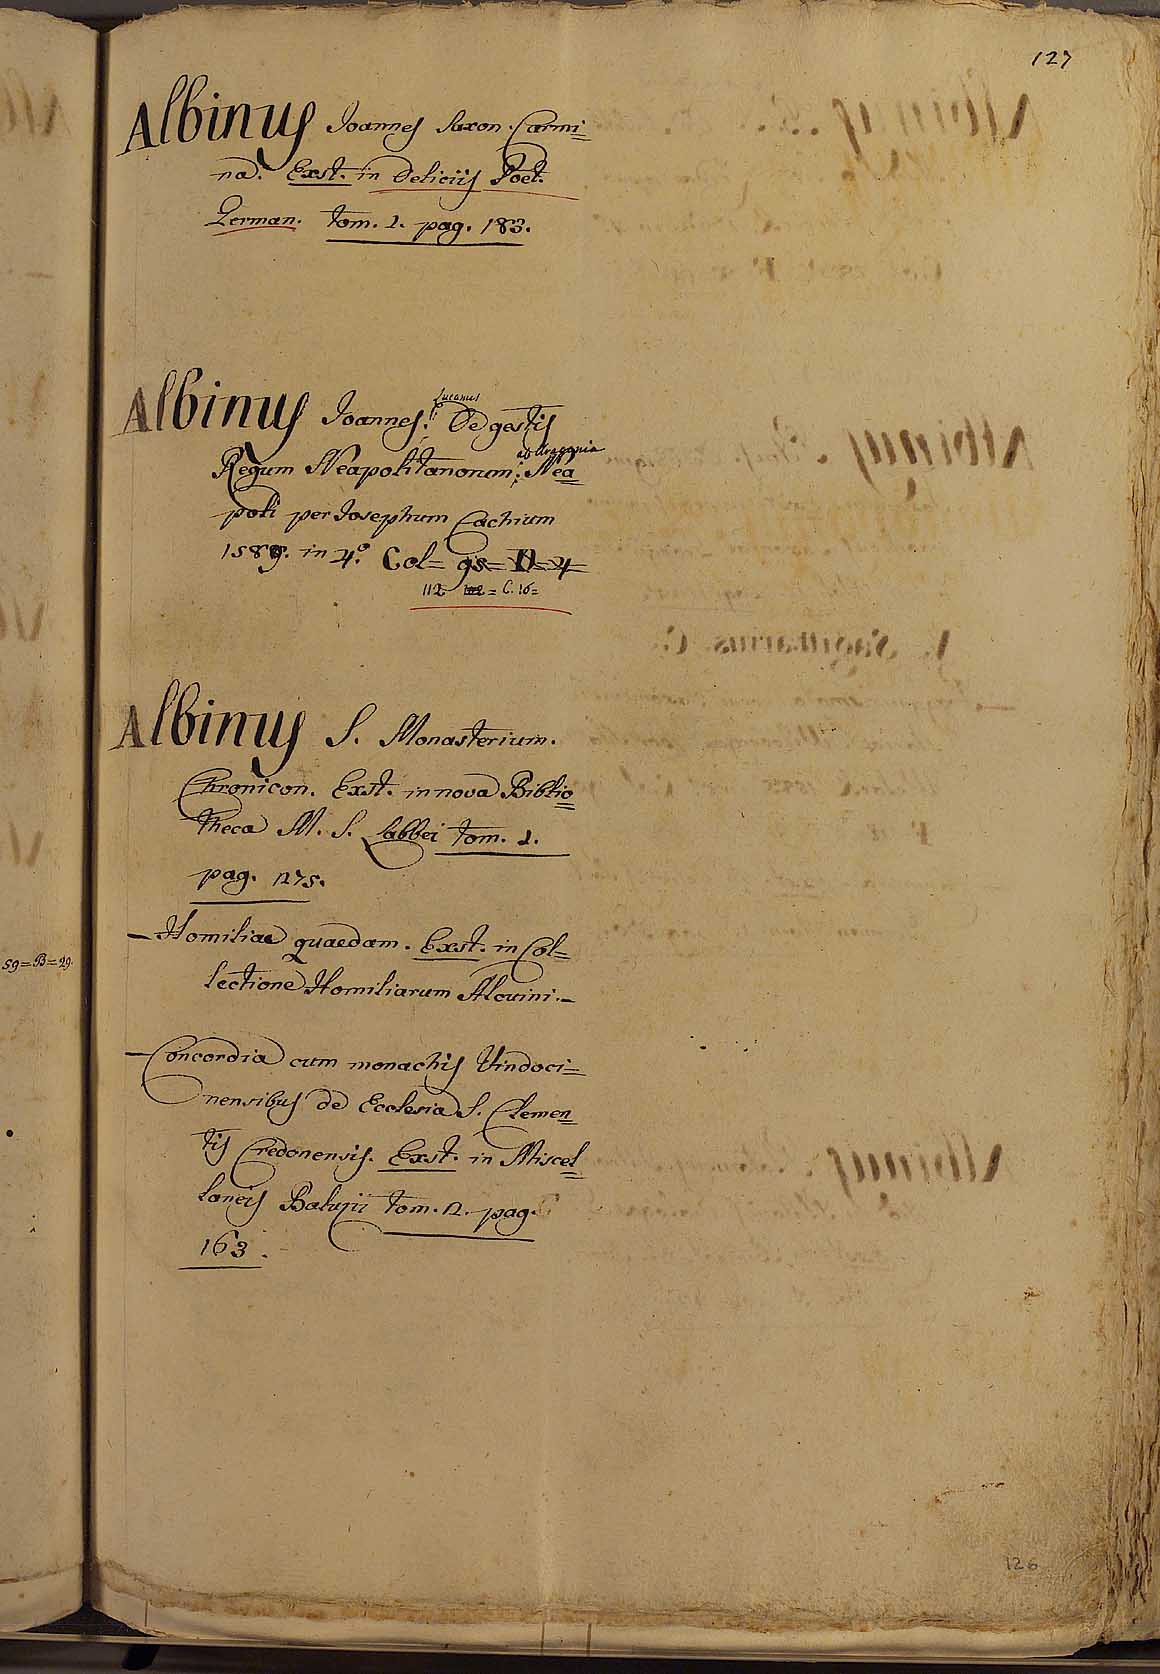 127
Albinus Joannes Saxon. Carmi=
na. Exst. in Deliciis Poet.
German. tom. 1. pag. 183.
Albinus Joannes. Lucanus De gestis
Regum Neapolitanorum: ab Aragonia Nea=
poli per Josephum Cachium
1589. in 4.º Col= 98= D=4=
112 102 = C. 16=
Albinus S. Monasterium.
Chronicon. Exst. in nova Biblio=
theca M. S. Labbei tom. 1.
pag. 275.
— Homiliae quaedam. Exst. in Col=
59=B=29.
lectione Homiliarum Alcuini.—
— Concordia cum monachis Vindoci=
nensibus de Ecclesia S. Clemen=
tis Credonensis. Exst. in Miscel=
laneis Baluzii tom. 2. pag.
163.
126